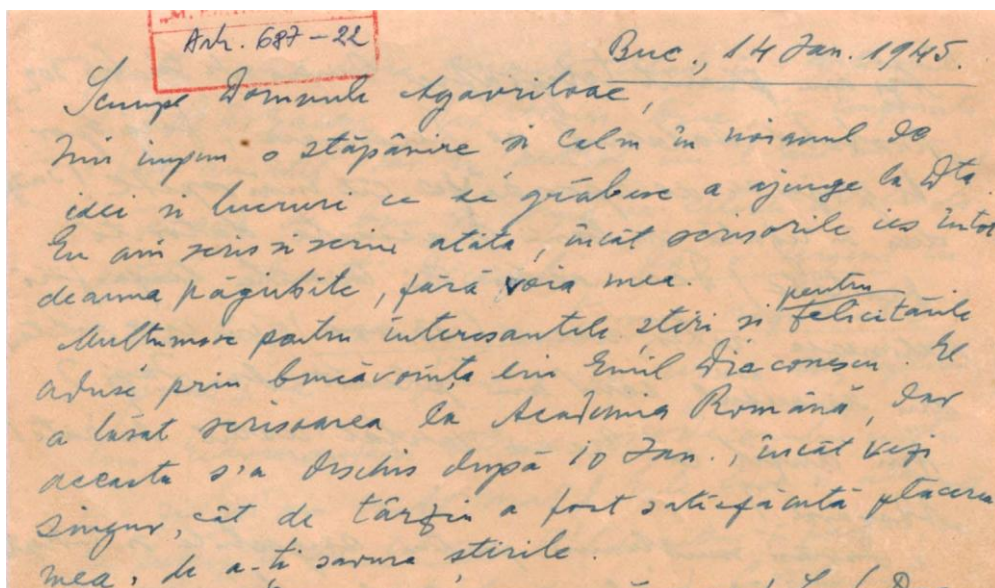 Arh. 687-22
Buc., 14 Jan. 1945.
Scumpe Domnule Agavriloae,
Imi impun o stăpânire și calm în noianul de
idei si lucruri ce se grăbesc a ajunge la Dta.
Eu am scris si scriu atâta, încât scrisorile ies întot
deauna păgubite, fără voia mea.
Multumesc pentru interesantele știri si pentru felicitările
aduse prin bunăvoința lui Emil Diaconescu. El
a lăsat scrisoarea la Academia Română, dar
aceasta s'a deschis după 10 Jan., încât vezi
singur, cât de târziu a fost satisfăcută placerea
mea, de a-ti savura știrile.